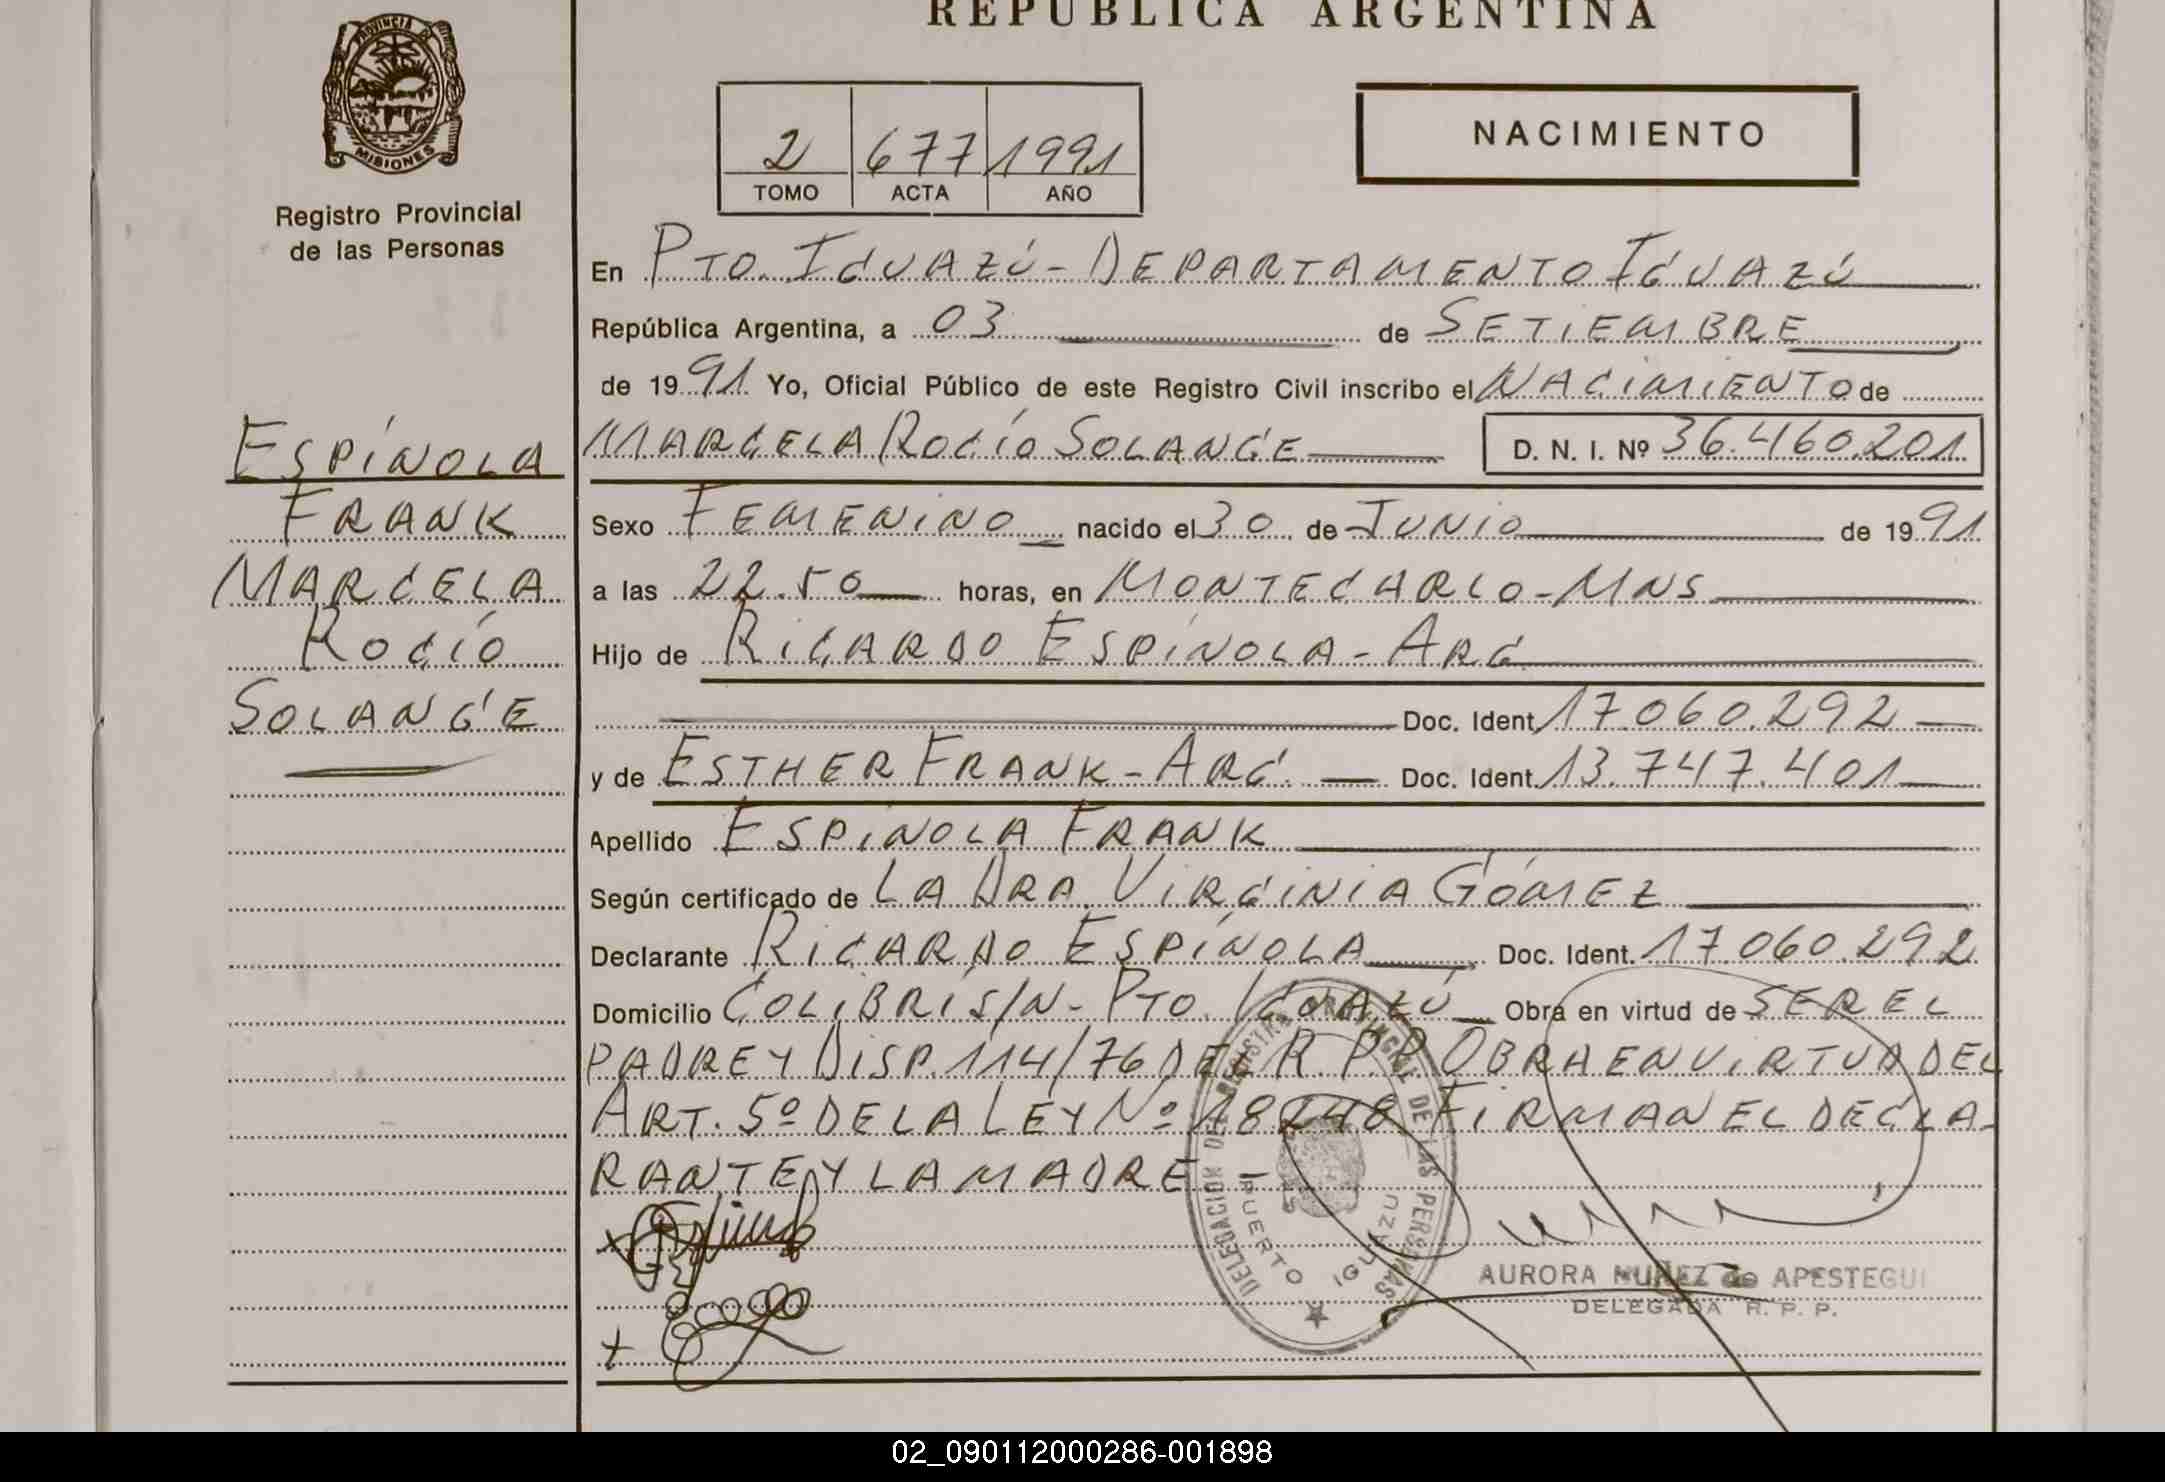 REPUBLICA ARGENTINA
PROVINCIA DE
MISIONES
Registro Provincial
de las Personas
2 677 1991
TOMO ACTA AÑO
NACIMIENTO
En PTO. IGUAZÚ - DEPARTAMENTO IGUAZÚ
República Argentina, a 03 de SETIEMBRE
de 1991 Yo, Oficial Público de este Registro Civil inscribo el NACIMIENTO de
MARCELA ROCÍO SOLANGE D. N. I. Nº 36.460.201
Sexo FEMENINO nacido el 30 de JUNIO de 1991
a las 22.50 horas, en MONTECARLO - MNS
Hijo de RICARDO ESPÍNOLA - ARG
Doc. Ident. 17.060.292
y de ESTHER FRANK - ARG. Doc. Ident. 13.747.401
Apellido ESPÍNOLA FRANK
Según certificado de LA DRA. VIRGINIA GÓMEZ
Declarante RICARDO ESPÍNOLA Doc. Ident. 17.060.292
Domicilio COLIBRÍ S/N - PTO. IGUAZÚ Obra en virtud de SER EL
PADRE Y DISP. 114/76 DEL R.P.P. OBRA EN VIRTUD DEL
ART. 5º DE LA LEY Nº 18248 FIRMAN EL DECLA-
RANTE Y LA MADRE
ESPÍNOLA
FRANK
MARCELA
ROCÍO
SOLANGE
DELEGACION DEL REGISTRO PROVINCIAL DE LAS PERSONAS
PUERTO IGUAZU
AURORA NUÑEZ de APESTEGUI
DELEGADA R. P. P.
02_090112000286-001898